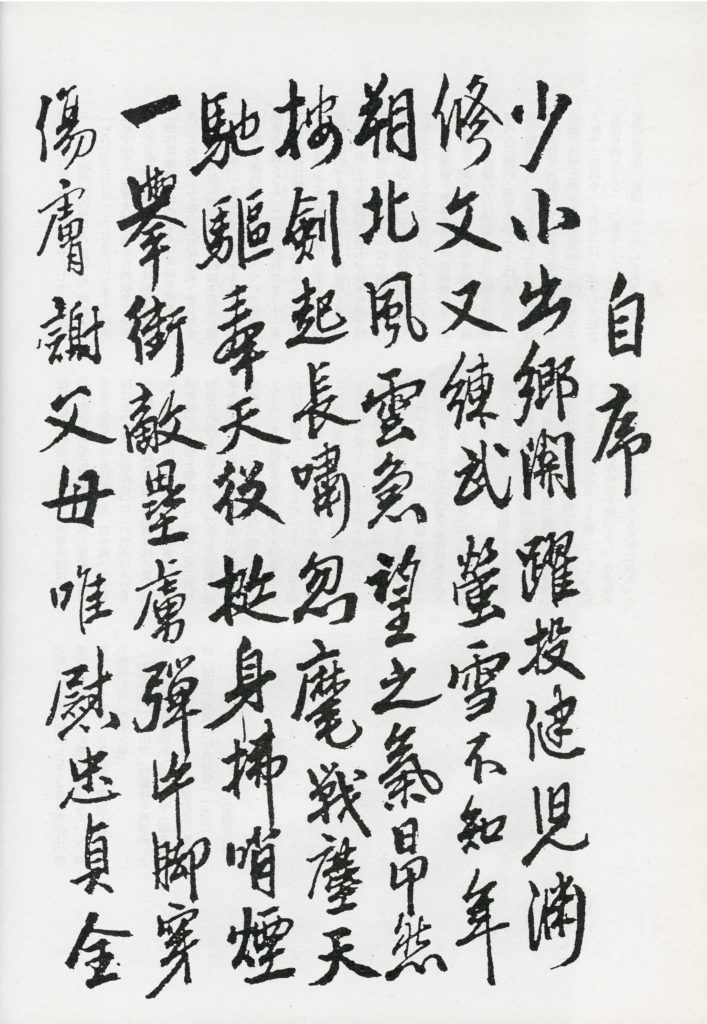 自序
少小出鄉関躍投健児淵
修文又練武螢雪不知年
朔北風雲急望之氣昂然
按劍起長嘯忽麾戰塵天
馳驅奉天役挺身掃哨煙
一擧衝敵壘虜彈片脚穿
傷膚謝父母唯慰忠貞全